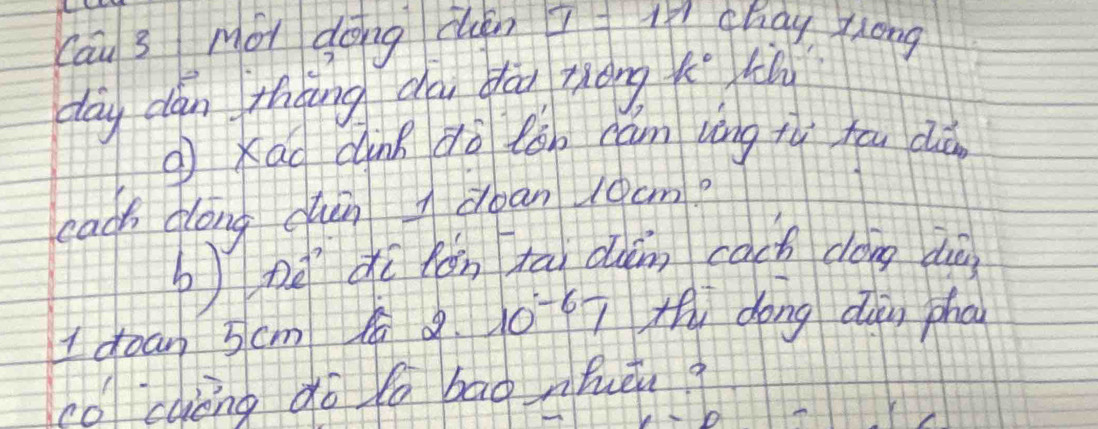 Câu 3 Một dòng điện I = 1A chạy trong
dây dẫn thẳng dài đặt trong k° khí
a) Xác định độ lớn cảm ứng từ tại điểm
cách dòng điện 1 đoạn 10cm?
b) Để độ lớn tại điểm cách dòng điện
1 đoạn 5cm là 2. 10⁻⁶T thì dòng điện phải
có cường độ là bao nhiêu?